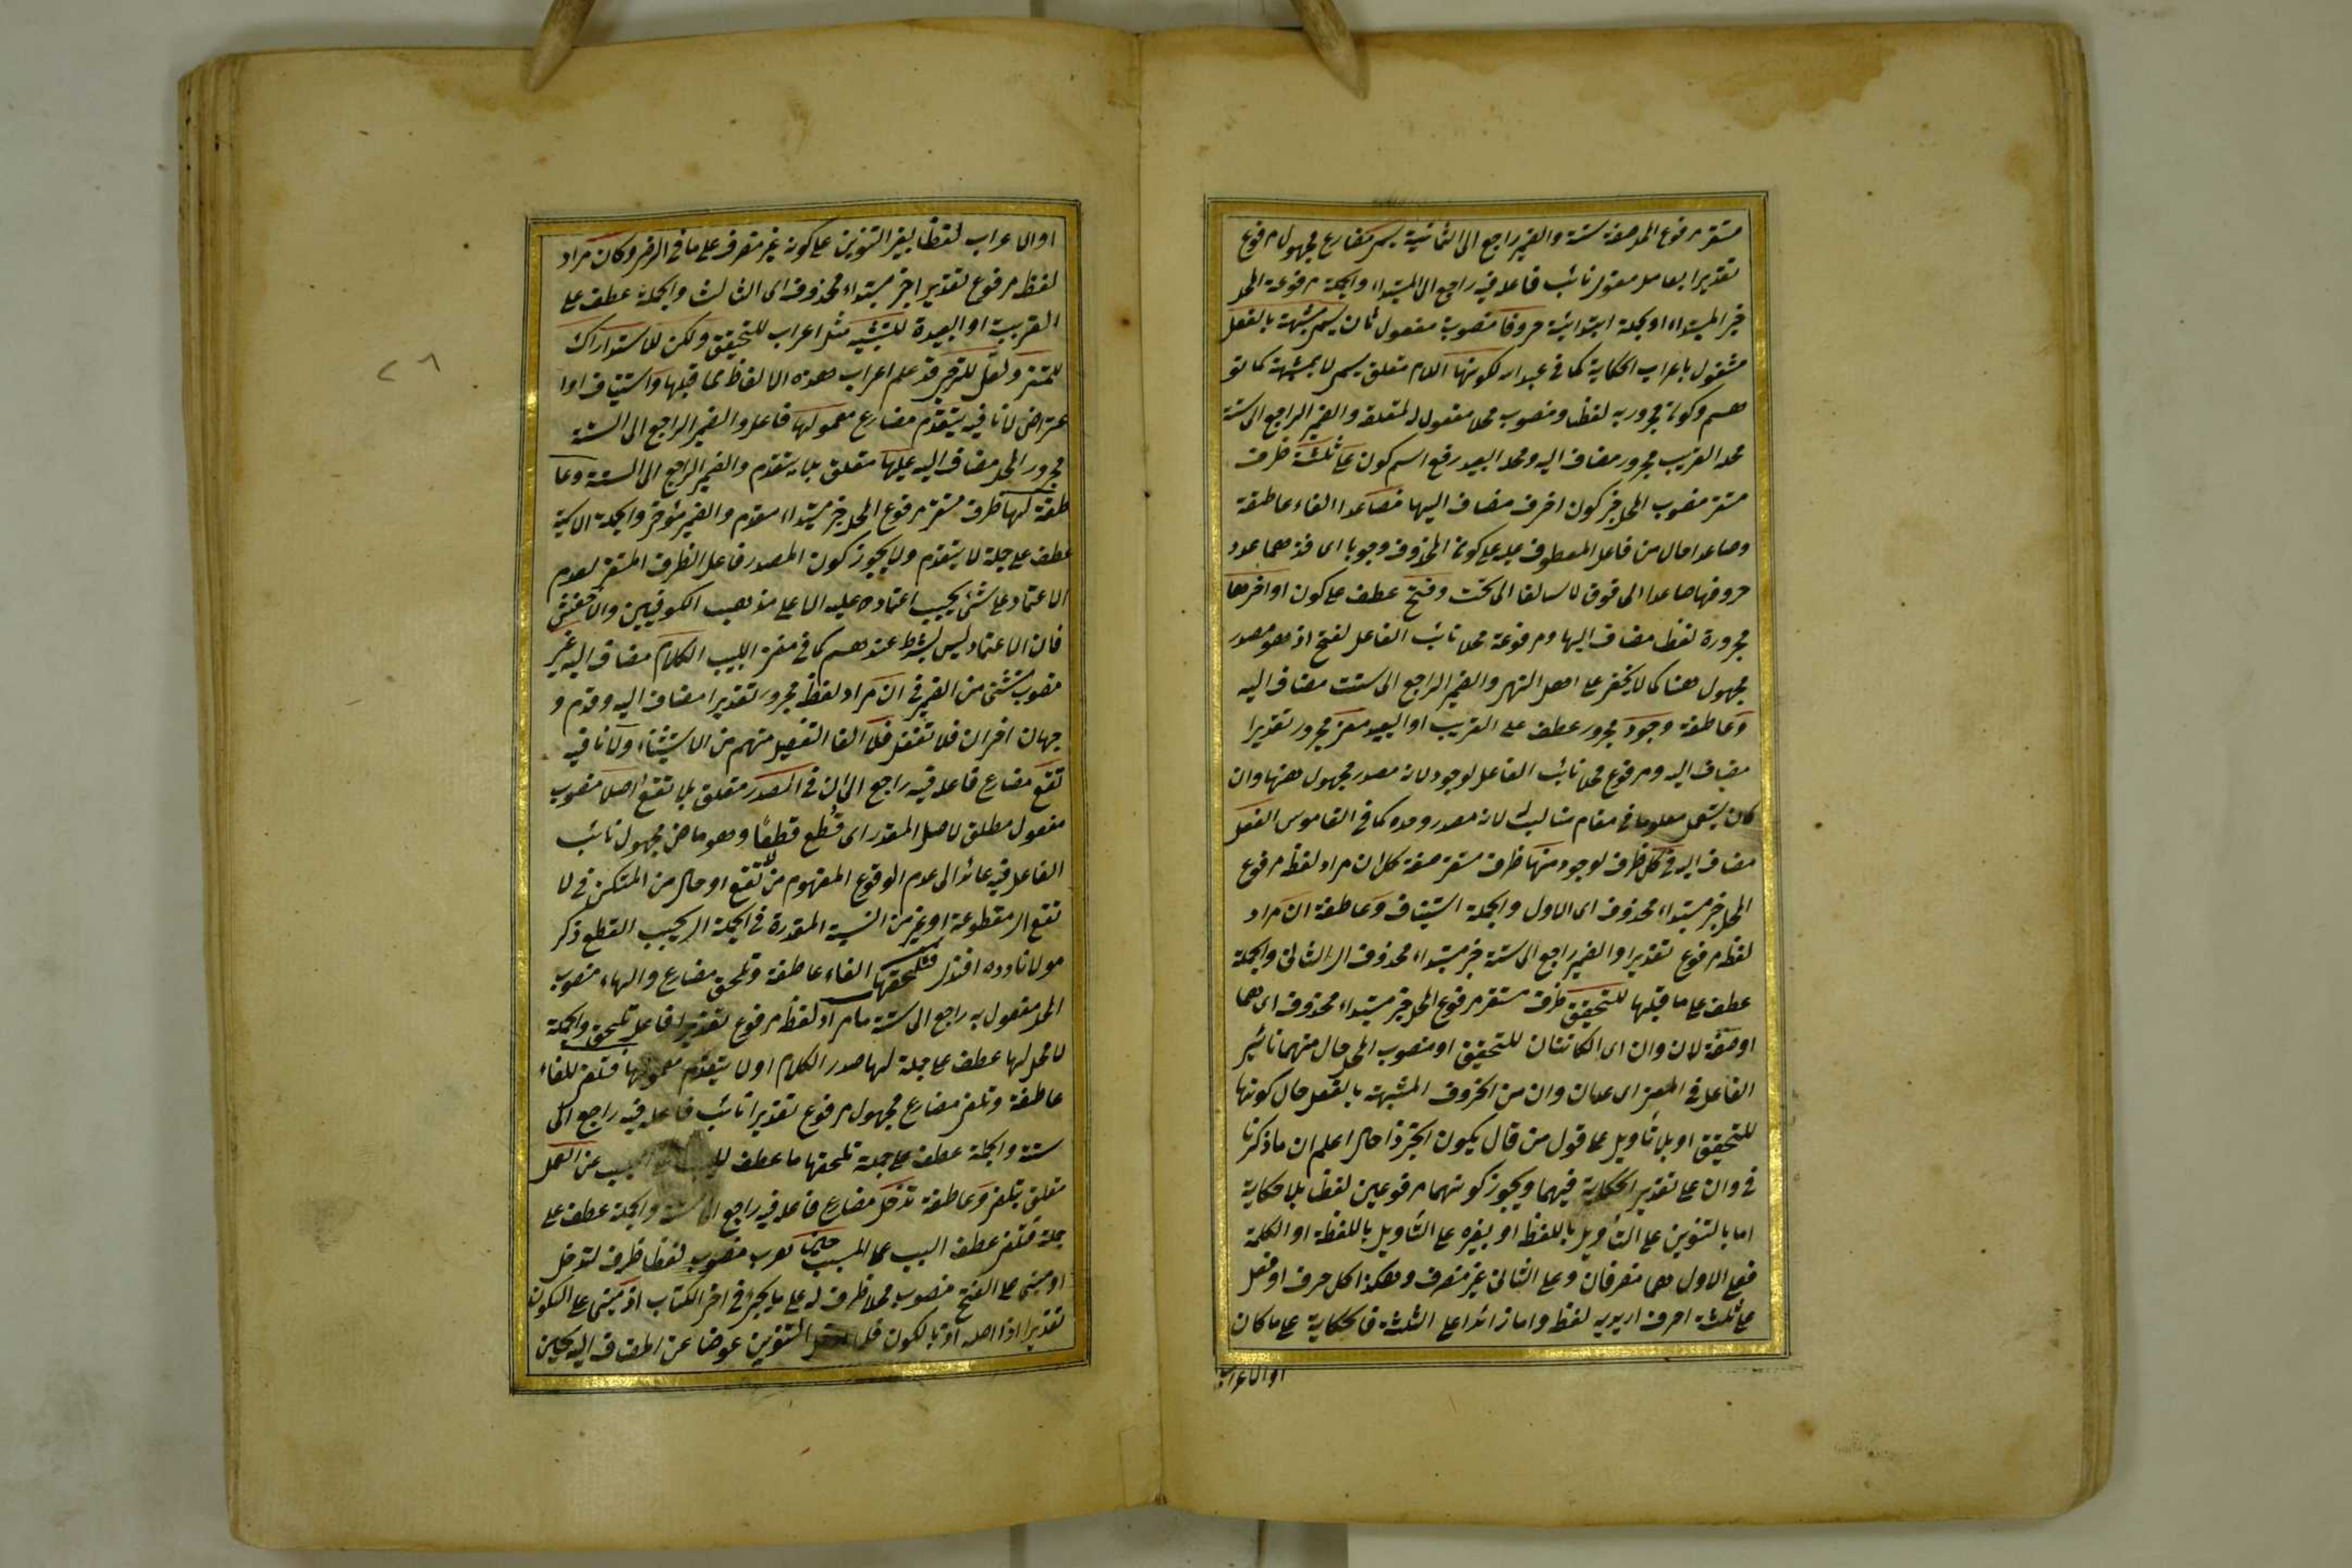 مستقر مرفوع المحل صفة ستة والضمير راجع الى الثمانية يسمى مضارع مجهول مرفوع
تقديرا بعامل معنوى نائب فاعله فيه راجع الى المبتداء والجملة مرفوعة المحل
خبر المبتداء او جملة ابتدائية حروفا منصوبة مفعول ثان يسمى مشبهة بالفعل
مشغول باعراب الحكاية كما فى عبد الله لكونها اللام متعلق يسمى لا بمشبهة كما تو
هم وكون مجرور به لفظا ومنصوب محلا مفعول له لمتعلقه والضمير الراجع الى ستة
محله القريب مجرور مضاف اليه ومحله البعيد رفع اسم كون على ثلثة ظرف
مستقر منصوب المحل خبر كون احرف مضاف اليها فصاعدا الفاء عاطفة
وصاعدا حال من فاعل المعطوف عليه على كونه المحذوف وجوبا اى فذهب عدد
حروفها صاعدا الى فوق لا سافلا الى تحت وفتح عطف على كون اواخرها
مجرورة لفظا مضاف اليها ومرفوعة محلا نائب الفاعل لفتح اذ هو مصدر
مجهول هنا كما لا يخفى على اهل النهى والضمير الراجع الى ست مضاف اليه
وعاطفة وجود مجرور عطف على القريب او البعيد معنى مجرور تقديرا
مضاف اليه ومرفوع محلا نائب الفاعل لوجود لانه مصدر مجهول ههنا وان
كان يستعمل معلوما فى مقام مناسب لانه مصدر وجده كما فى القاموس الفعل
مضاف اليه فى كل ظرف لوجود منها ظرف مستقر صفة كل ان مراد لفظه مرفوع
المحل خبر مبتداء محذوف اى الاول والجملة استيناف وعاطفة ان مراد
لفظه مرفوع تقديرا والضمير راجع الى ستة خبر مبتداء محذوف اى الثانى والجملة
عطف على ما قبلها للتحقيق ظرف مستقر مرفوع المحل خبر مبتداء محذوف اى هما
او صفة لان وان اى الكائنتان للتحقيق او منصوب المحل حال منهما تاثير
الفاعل فى المعنى اى عدان وان من الحروف المشبهة بالفعل حال كونها
للتحقيق او بلا تأويل على قول من قال يكون الخبر ذا حال اعلم ان ما ذكرنا
فى وان على تقدير الحكاية فيهما ويجوز كونهما مرفوعين لفظا بلا حكاية
اما بالتنوين على التأويل باللفظ او بغيره على التأويل باللفظة او الكلمة
فعلى الاول هما منصرفان وعلى الثانى غير منصرف وهكذا كل حرف او فعل
على ثلثة احرف اريد به لفظه واما زائدا على الثلثة فالحكاية على ما كان
او الاعراب
او الاعراب لفظا بغير التنوين على كونه غير منصرف على ما فى الرضى وكان مراد
لفظه مرفوع تقديرا خبر مبتداء محذوف اى الثالث والجملة عطف على
القريبة او البعيدة للتشبيه مثل اعراب للتحقيق ولكن للاستدراك
للتمنى ولعل للترجى قد علم اعراب هذه الالفاظ مما قبلها واستيناف اوا
عتراض لا نافيه يتقدم مضارع معمولها فاعله والضمير الراجع الى الستة
مجرور المحل مضاف اليه عليها متعلق بلا يتقدم والضمير الراجع الى الستة وعا
طفة لها ظرف مستقر مرفوع المحل خبر مبتداء مقدم والضمير مؤخر والجملة الاسمية
عطف على جملة لا يتقدم ولا يجوز كون المصدر فاعل الظرف المستقر لعدم
الاعتماد على شئ يجب اعتماده عليه الا على مذهب الكوفيين والاخفش
فان الاعتماد ليس بشرط عندهم كما فى مغنى اللبيب الكلام مضاف اليه غير
منصوب مستثنى من الضمير فى ان مراد لفظه مجرور تقديرا مضاف اليه وقدم و
جهان اخران فلا تغفل فلا الفا التفصيل منهم من الاستثناء ولا نافيه
تقع مضارع فاعله فيه راجع الى ان فى المصدر متعلق بلا تقع اصلا منصوب
مفعول مطلق لاصل المقدر اى قطع قطعا وهو ماض مجهول نائب
الفاعل فيه عائد الى عدم الوقوع المفهوم من لا تقع او حال من المستكن فى لا
تقع اى مقطوعة او غير من النسبة المقدرة فى الجملة اى بحسب القطع ذكر
مولانا وده افندى فتلحقها الفاء عاطفة وتلحق مضارع والهاء منصوب
المحل مفعول به راجع الى ستة ما مراد لفظه مرفوع تقديرا فاعل تلحق والجملة
لا محل لها عطف على جملة لها صدر الكلام او لا يتقدم معمولها فتلغى للفاء
عاطفة وتلغى مضارع مجهول مرفوع تقديرا نائب فاعله فيه راجع الى
ستة والجملة عطف على جملة تلحقها ما عطف عن العمل
متعلق بتلغى وعاطفة تدخل مضارع فاعله فيه راجع الى ستة والجملة عطف على
جملة فتلغى عطف السبب على المسبب حينئذ معرب منصوب لفظا ظرف لتدخل
او مبنى على الفتح منصوب محلا ظرف له على ما يجئ فى اخر الكتاب اذ مبنى على السكون
تقديرا اذ اصله اذ بالسكون التنوين عوضا عن المضاف اليه لحين